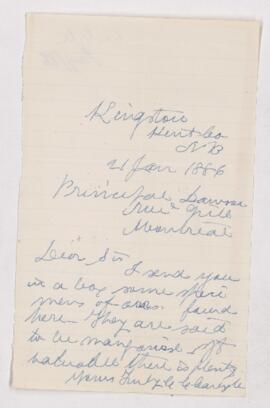 Kingston
Kent Co
NB
21 Jan 1886
Principal Dawson
McGill
Montreal
Dear Sir
I send you
in a box some speci
mens of ores found
here They are said
to be manganese if
valuable there is plenty
Yours Truly